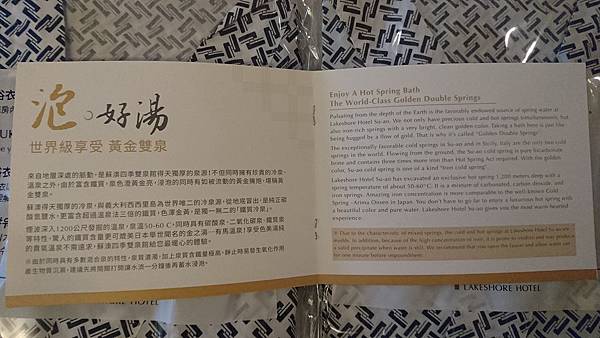 泡。好湯
世界級享受 黃金雙泉
來自地層深處的脈動,是蘇澳四季雙泉睥得天獨厚的泉源!不但同時擁有珍貴的冷泉、
溫泉之外,由於富含鐵質,泉色澄黃金亮,浸泡的同時有如被流動的黃金擁抱,堪稱黃
金雙泉。
蘇澳得天獨厚的冷泉,與義大利西西里島為世界唯二的冷泉源,從地底冒出,是純正碳
酸氫鹽水,更富含超過溫泉法三倍的鐵質,色澤金黃,是獨一無二的「鐵質冷泉」。
煙波深入1200公尺發掘的溫泉,泉溫50-60 C,同時具有碳酸泉、二氧化碳泉、鐵質泉
等特性,驚人的鐵質含量更可媲美日本舉世聞名的金之湯—有馬溫泉!享受色美湯純
的貴氣溫泉不需遠求,蘇澳四季雙泉館給您最暖心的體驗。
※由於同時具有多數混合泉的特性,泉質濃濁,加上泉質含鐵量極高,靜止時易發生氧化作用
產生物質沉澱,建議先將開關打開讓水流一分鐘後再蓄水浸泡。
Enjoy A Hot Spring Bath
The World-Class Golden Double Springs
Pulsating from the depth of the Earth is the favorably endowed source of spring water at
Lakeshore Hotel Su-ao. We not only have precious cold and hot springs simultaneously, but
also iron-rich springs with a very bright, clean golden color. Taking a bath here is just like
being hugged by a flow of gold. That is why it's called "Golden Double Springs"
The exceptionally favorable cold springs in Su-ao and in Sicily, Italy are the only two cold
springs in the world. Flowing from the ground, the Su-ao cold spring is pure bicarbonate
brine and contains three times more iron than Hot Spring Act required. With the golden
color, Su-ao cold spring is one of a kind "Iron cold spring".
Lakeshore Hotel Su-ao has excavated an exclusive hot spring 1,200 meters deep with a
spring temperature of about 50-60° C. It is a mixture of carbonated, carbon dioxide, and
iron springs. Amazing iron concentration is more comparable to the well-known Gold
Spring -Arima Onsen in Japan. You don't have to go far to enjoy a luxurious hot spring with
a beautiful color and pure water. Lakeshore Hotel Su-ao gives you the most heart-warmed
experience.
※ Due to the characteristic of mixed springs, the cold and hot springs at Lakeshore Hotel Su-ao are
muddy. In addition, because of the high concentration of iron, it is prone to oxidize and may produce
a solid precipitate when water is still. We recommend that you open the faucet and allow water run
for one minute before impoundment.
LAKESHORE HOTEL
HOTEL